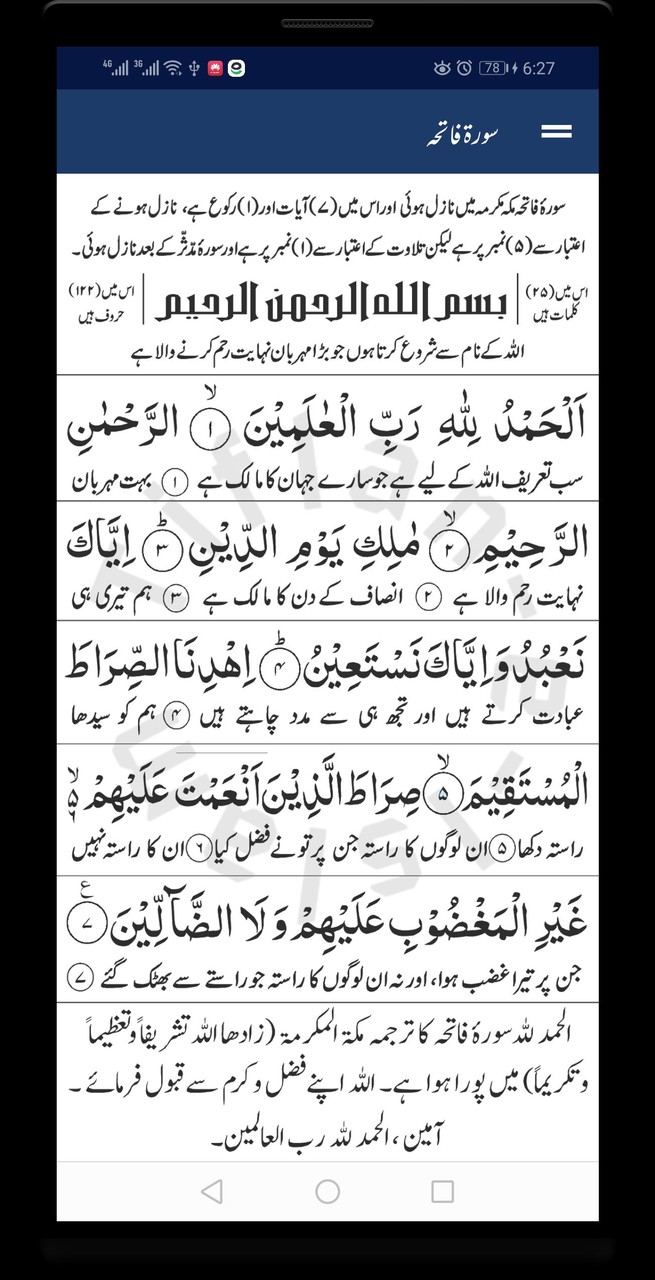 4G 3G 78 6:27
سورۃ فاتحہ
سورۂ فاتحہ مکہ مکرمہ میں نازل ہوئی اور اس میں (۷) آیات اور (۱) رکوع ہے، نازل ہونے کے
اعتبار سے (۵) نمبر پر ہے لیکن تلاوت کے اعتبار سے (۱) نمبر پر ہے اور سورۂ مدثّر کے بعد نازل ہوئی۔
اس میں (۲۵) کلمات ہیں
بسم الله الرحمن الرحيم
اس میں (۱۲۲) حروف ہیں
اللہ کے نام سے شروع کرتا ہوں جو بڑا مہربان نہایت رحم کرنے والا ہے
اَلْحَمْدُ لِلّٰهِ رَبِّ الْعٰلَمِيْنَ ۙ ۱ الرَّحْمٰنِ
سب تعریف اللہ کے لیے ہے جو سارے جہان کا مالک ہے ۱ بہت مہربان
الرَّحِيْمِ ۙ ۲ مٰلِكِ يَوْمِ الدِّيْنِ ؕ ۳ اِيَّاكَ
نہایت رحم والا ہے ۲ انصاف کے دن کا مالک ہے ۳ ہم تیری ہی
نَعْبُدُ وَاِيَّاكَ نَسْتَعِيْنُ ؕ ۴ اِهْدِنَا الصِّرَاطَ
عبادت کرتے ہیں اور تجھ ہی سے مدد چاہتے ہیں ۴ ہم کو سیدھا
الْمُسْتَقِيْمَ ۙ ۵ صِرَاطَ الَّذِيْنَ اَنْعَمْتَ عَلَيْهِمْ ۙ۵
راستہ دکھا ۵ ان لوگوں کا راستہ جن پر تو نے فضل کیا ۶ ان کا راستہ نہیں
غَيْرِ الْمَغْضُوْبِ عَلَيْهِمْ وَلَا الضَّآلِّيْنَ ۷ ع
جن پر تیرا غضب ہوا، اور نہ ان لوگوں کا راستہ جو راستے سے بھٹک گئے ۷
الحمد للہ سورۂ فاتحہ کا ترجمہ مکۃ المکرمۃ (زادھا اللہ تشریفاً وتعظیماً
وتکریماً) میں پورا ہوا ہے۔ اللہ اپنے فضل و کرم سے قبول فرمائے۔
آمین، الحمد للہ رب العالمین۔